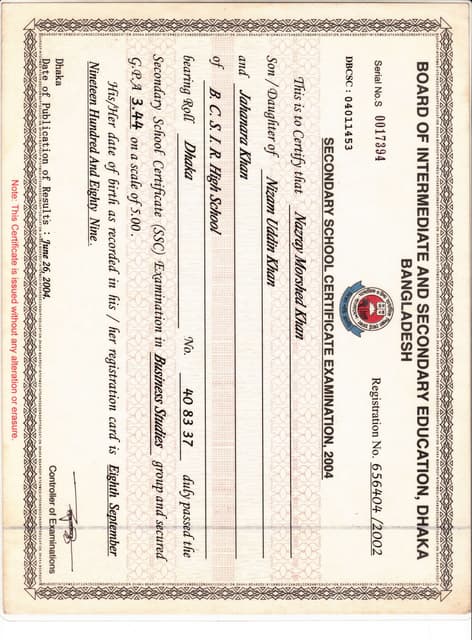 BOARD OF INTERMEDIATE AND SECONDARY EDUCATION, DHAKA
BANGLADESH
Serial No.S 0017394
Registration No. 656404/2002
DBCSC : 04011453
SECONDARY SCHOOL CERTIFICATE EXAMINATION, 2004
This is to Certify that Nazray Morshed Khan
Son / Daughter of Nizam Uddin Khan
and Jahanara Khan
of B. C. S. I. R. High School
bearing Roll Dhaka No. 40 83 37 duly passed the
Secondary School Certificate (SSC) Examination in Business Studies group and secured
G.P.A 3.44 on a scale of 5.00.
His/Her date of birth as recorded in his / her registration card is Eighth September
Nineteen Hundred And Eighty Nine.
Dhaka
Date of Publication of Results : June 26, 2004.
Controller of Examinations
Note: This Certificate is issued without any alteration or erasure.